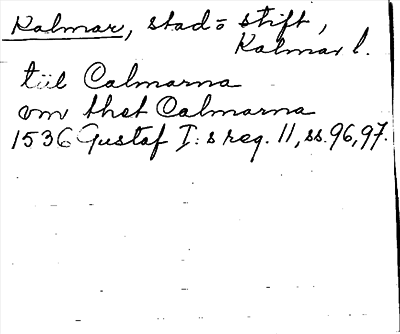 Kalmar, stad o stift,
Kalmar l.
till Calmarna
om thet Calmarna
1536 Gustaf I:s reg. 11, ss. 96, 97.